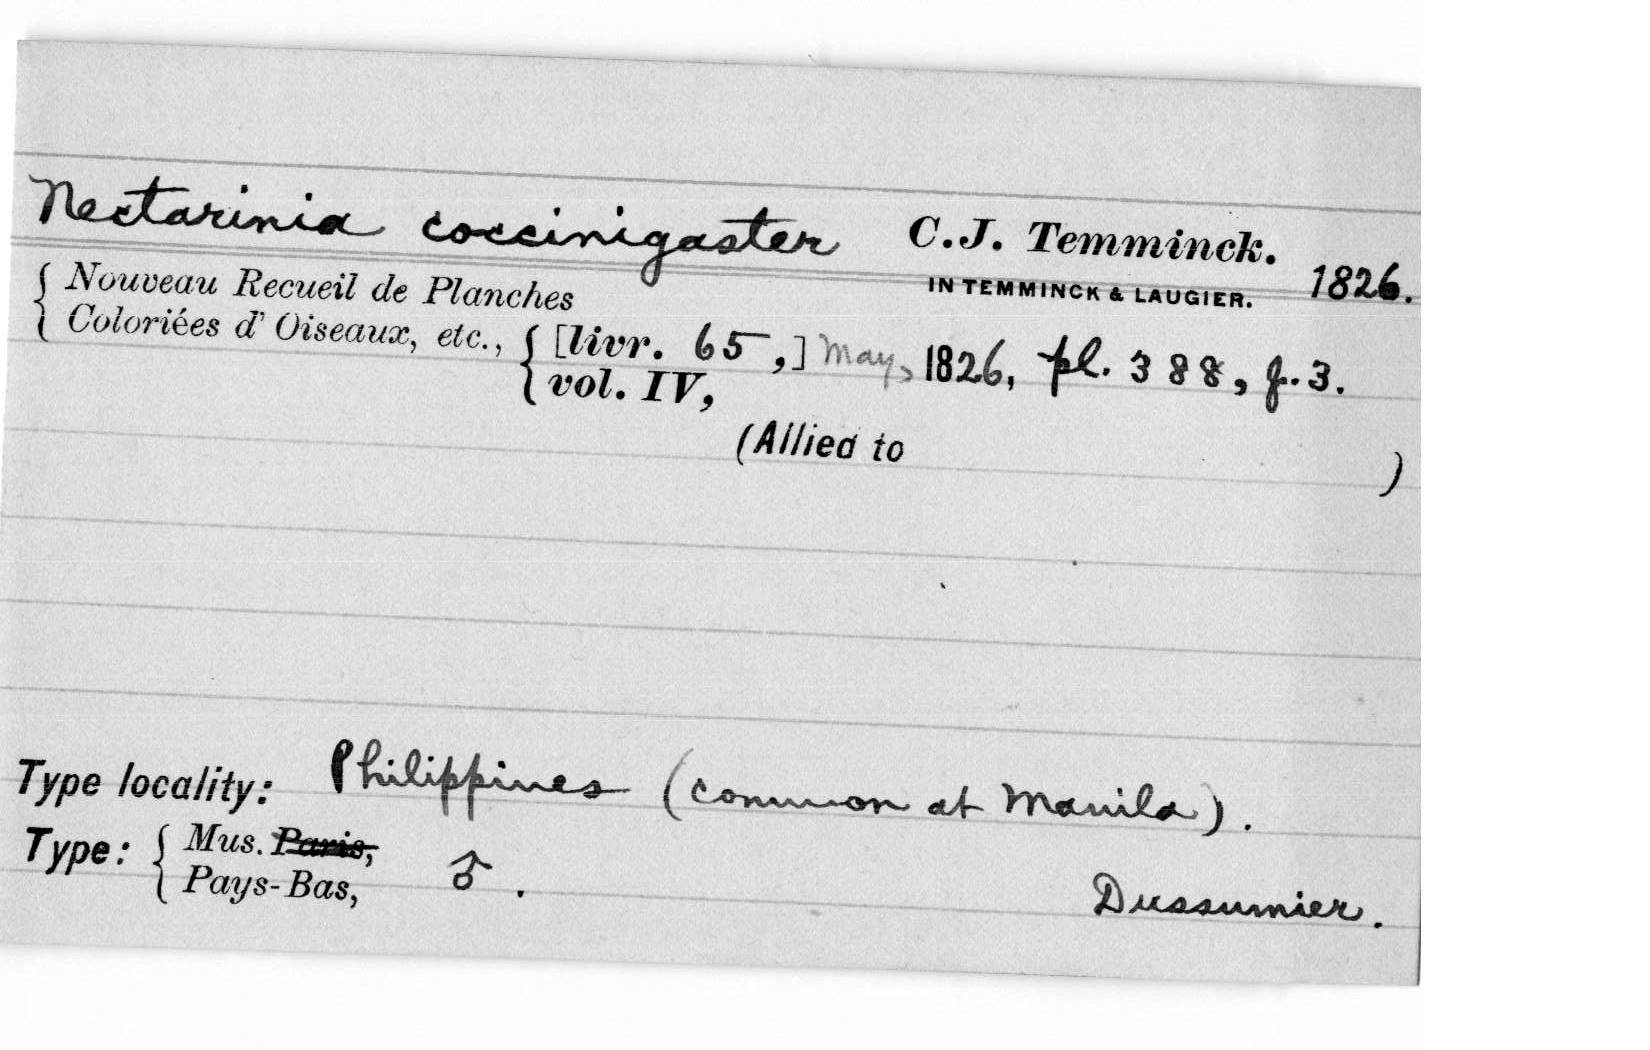 Nectarinia coccinigaster C.J. Temminck.
IN TEMMINCK & LAUGIER. 1826.
{ Nouveau Recueil de Planches
Coloriées d'Oiseaux, etc., { [livr. 65,] May, 1826, pl. 388, f. 3.
vol. IV,
(Allied to )
Type locality: Philippines (common at Manila).
Type: { Mus. Paris,
Pays-Bas, ♂.
Dussumier.